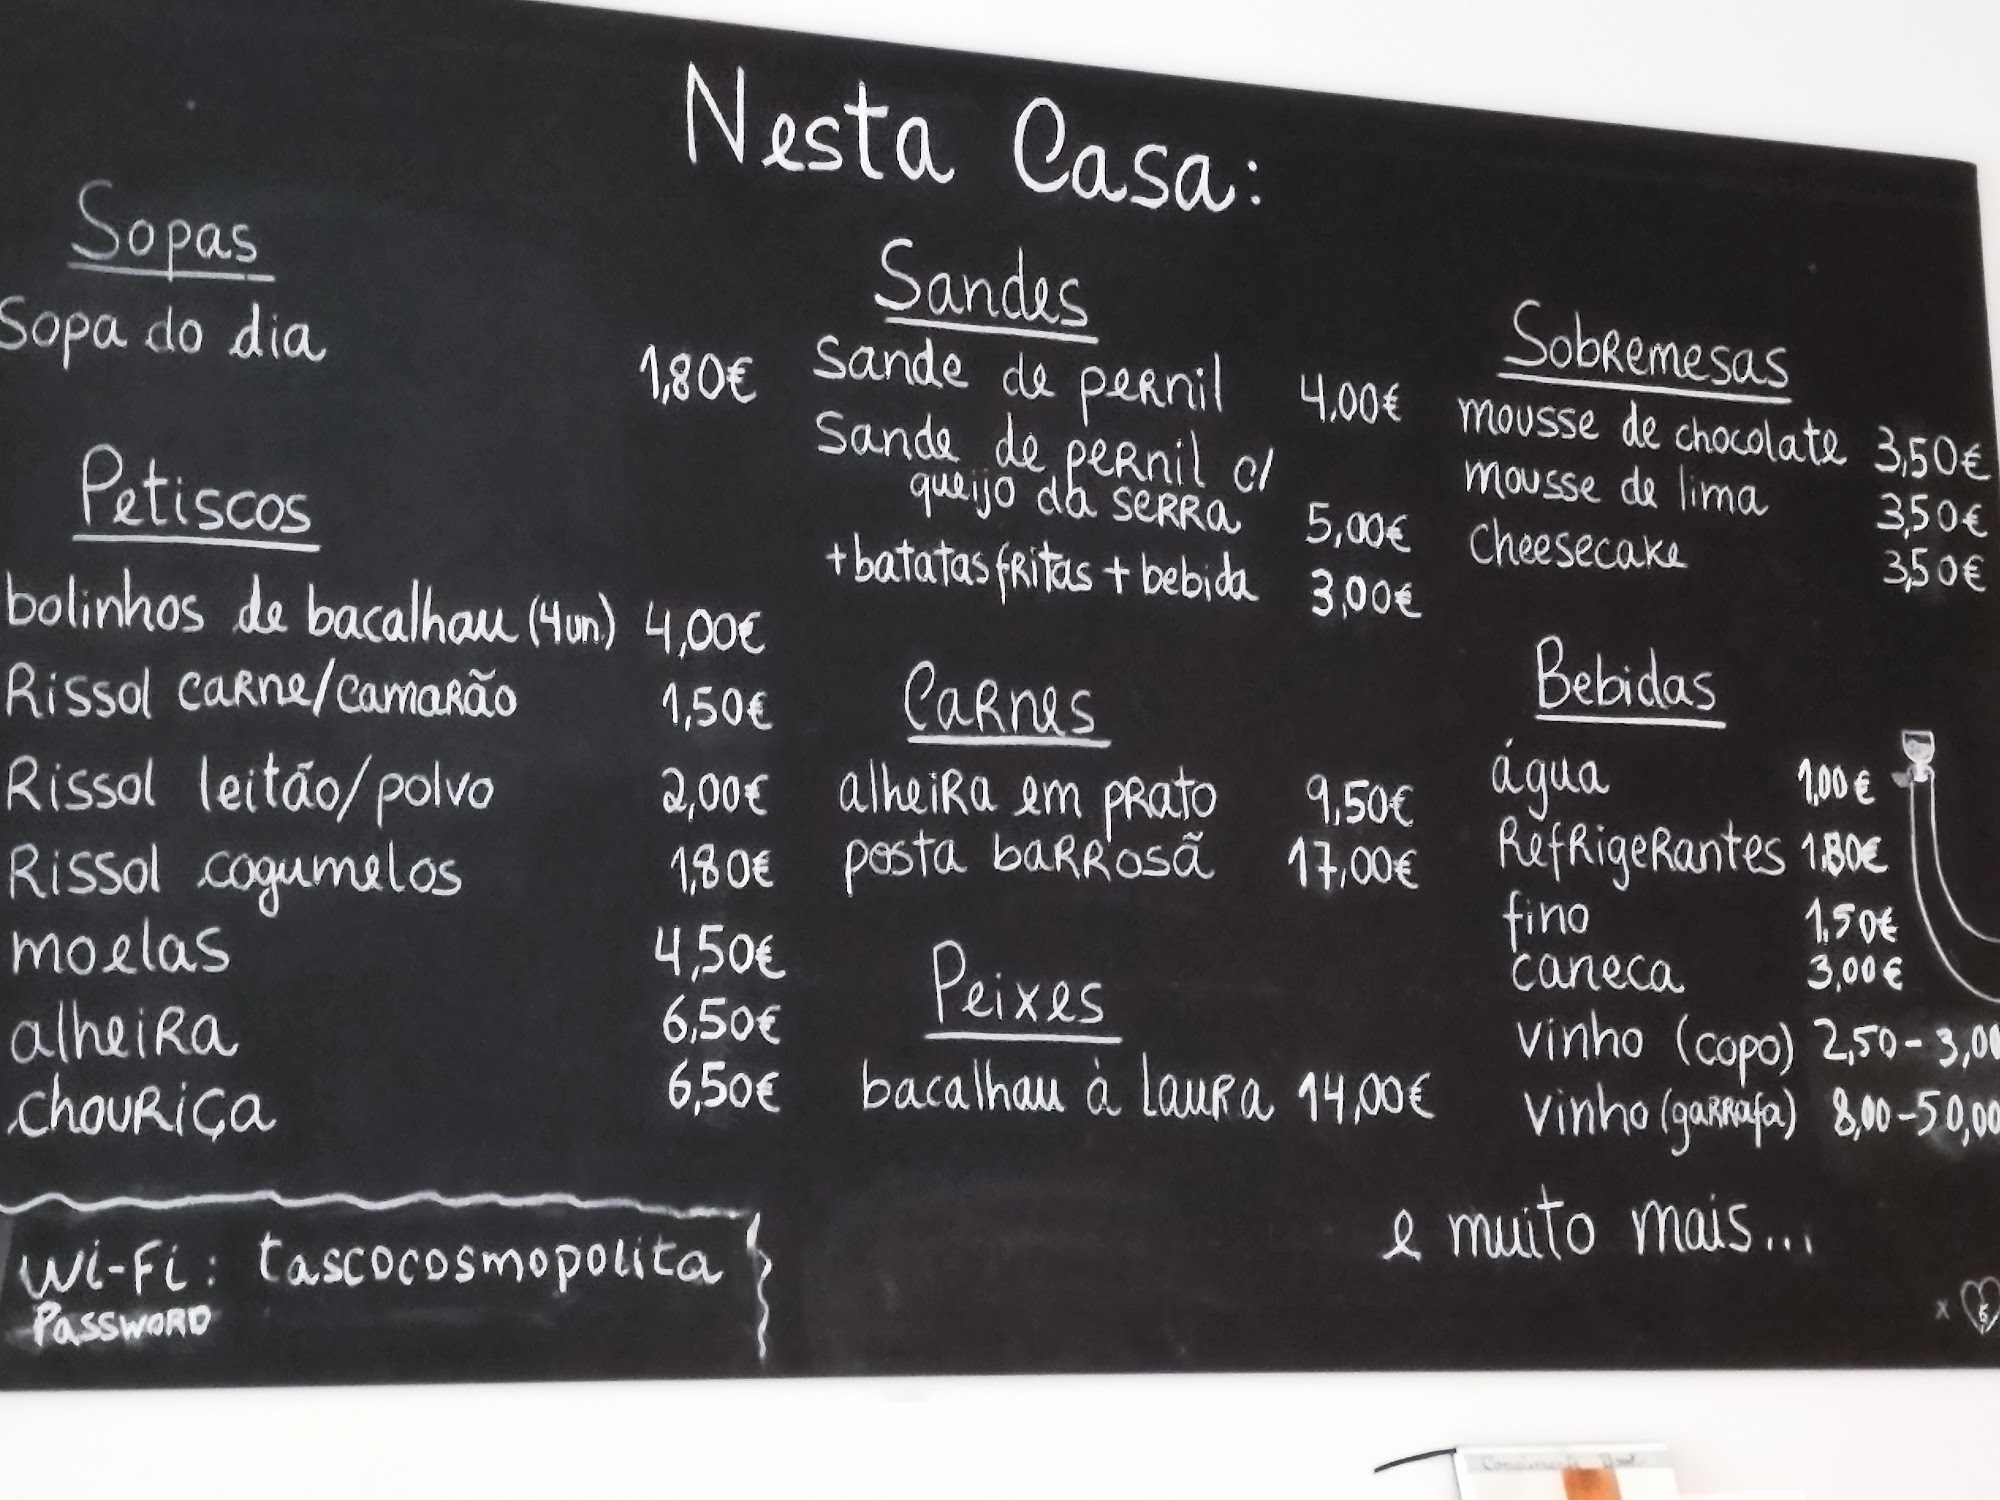 Nesta Casa:
Sopas
Sopa do dia 1,80€
Petiscos
bolinhos de bacalhau (4un.) 4,00€
Rissol carne/camarão 1,50€
Rissol leitão/polvo 2,00€
Rissol cogumelos 1,80€
moelas 4,50€
alheira 6,50€
chouriça 6,50€
Wi-Fi: tascocosmopolita
Password
Sandes
Sande de pernil 4,00€
Sande de pernil c/
queijo da serra 5,00€
+batatas fritas + bebida 3,00€
Carnes
alheira em prato 9,50€
posta barrosã 17,00€
Peixes
bacalhau à Laura 14,00€
Sobremesas
mousse de chocolate 3,50€
mousse de lima 3,50€
cheesecake 3,50€
Bebidas
água 1,00€
Refrigerantes 1,80€
fino 1,50€
caneca 3,00€
vinho (copo) 2,50-3,00
vinho (garrafa) 8,00-50,00
e muito mais...